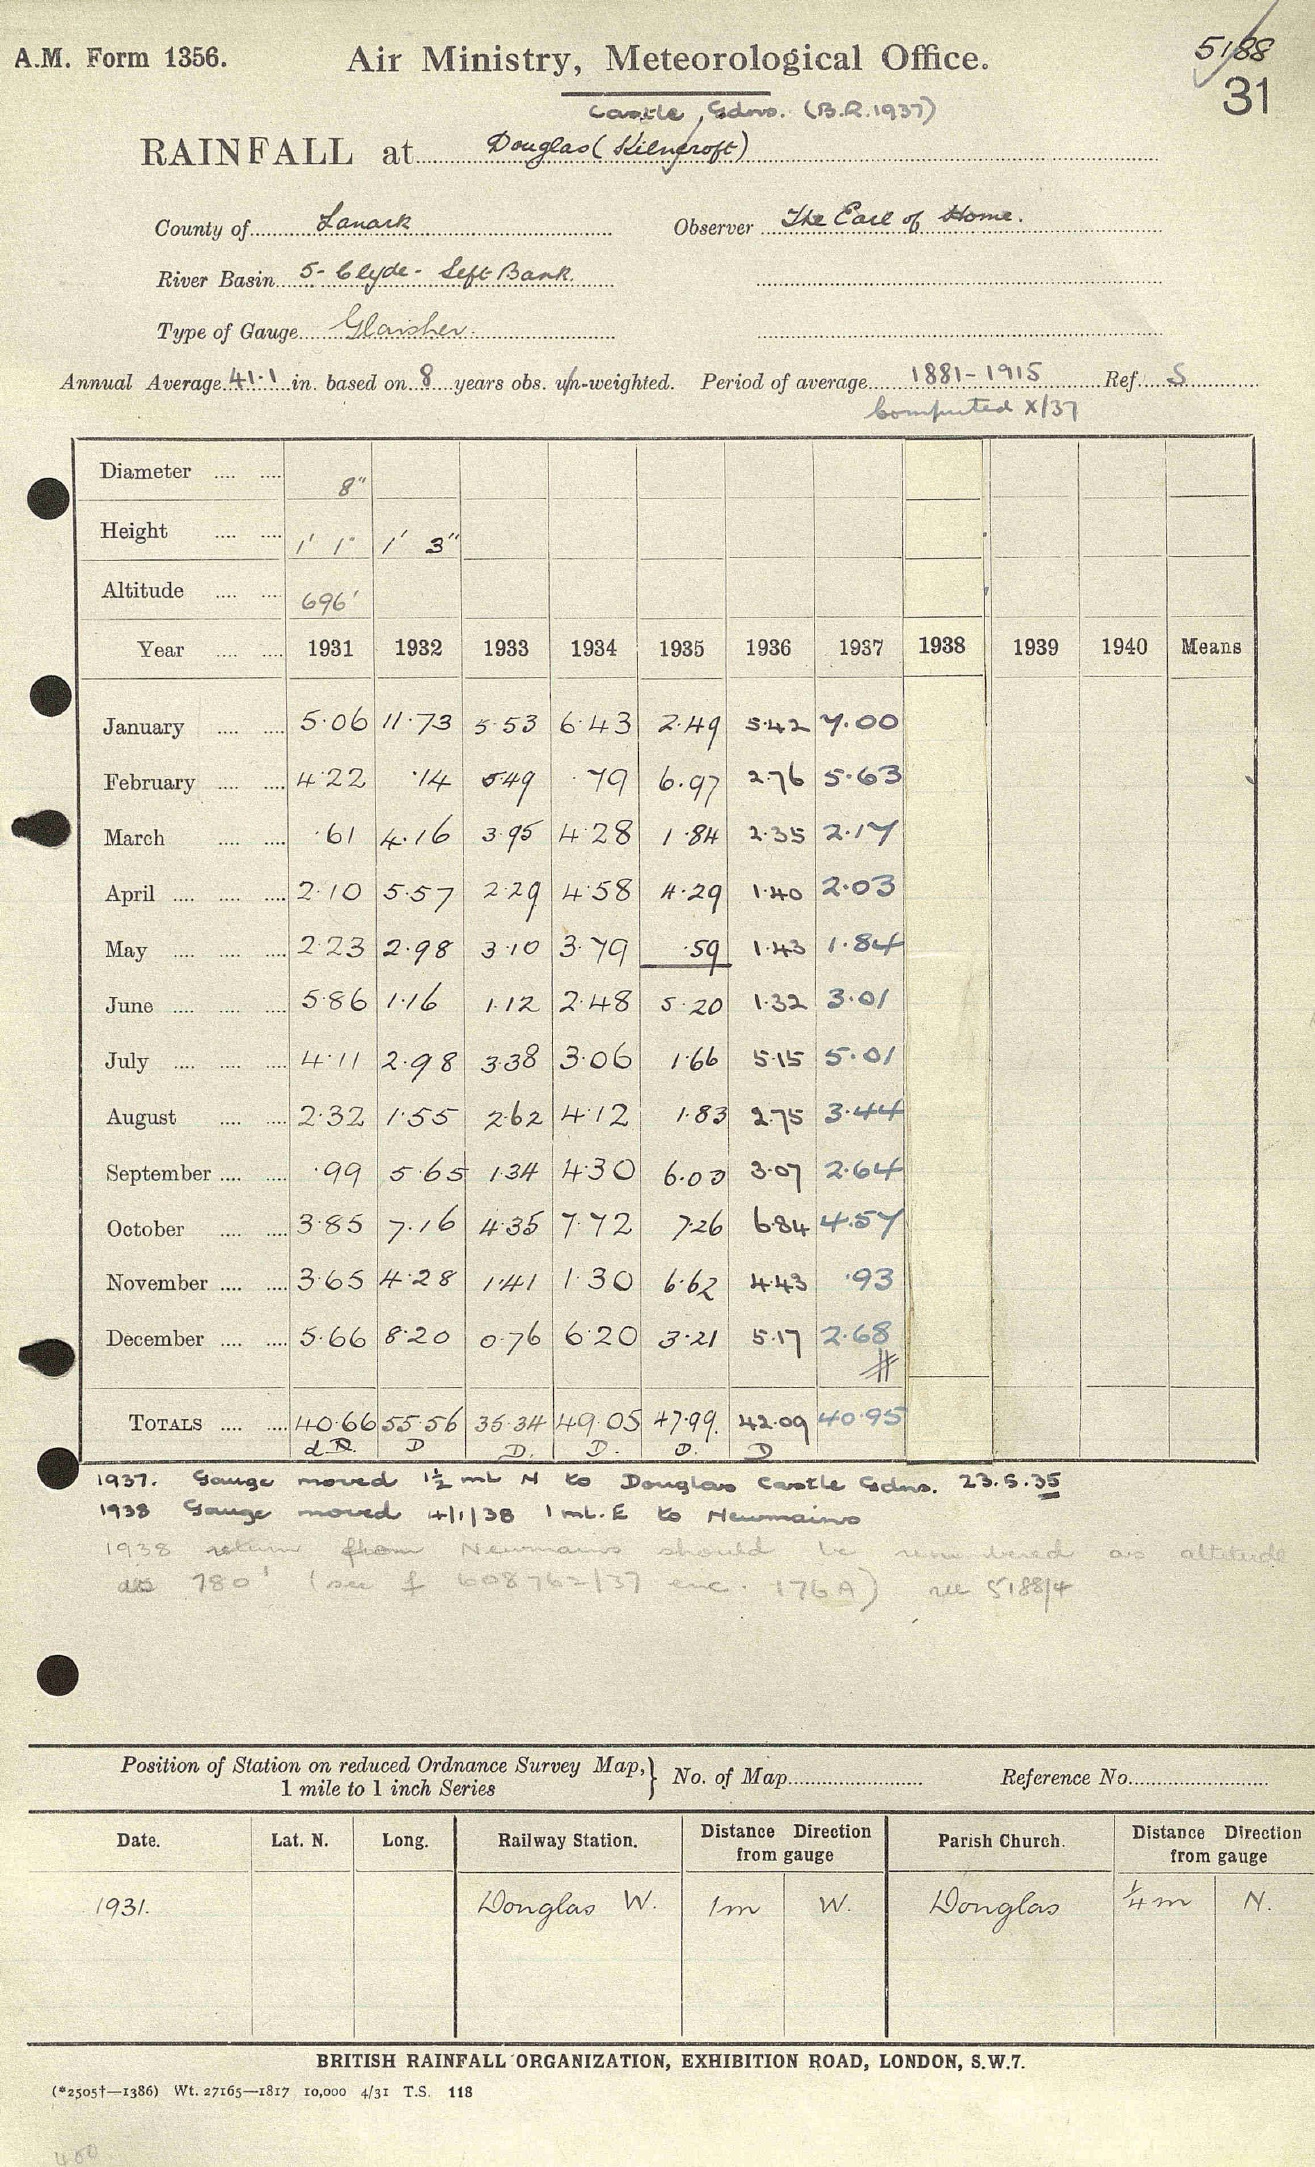 A.M. Form 1356. Air Ministry, Meteorological Office. 5188
31
Castle Gdns. (B.R. 1937)
RAINFALL at Douglas (Kilncroft)
County of Lanark Observer The Earl of Home.
River Basin 5 - Clyde - Left Bank.
Type of Gauge Glaisher.
Annual Average 41.1 in. based on 8 years obs. un-weighted. Period of average 1881-1915 Ref. S
Computed X/37
Diameter 8"
Height 1' 1" 1' 3"
Altitude 696'
Year 1931 1932 1933 1934 1935 1936 1937 1938 1939 1940 Means
January 5.06 11.73 5.53 6.43 2.49 5.42 7.00
February 4.22 .14 5.49 .79 6.97 2.76 5.63
March .61 4.16 3.95 4.28 1.84 2.35 2.17
April 2.10 5.57 2.29 4.58 4.29 1.40 2.03
May 2.23 2.98 3.10 3.79 .59 1.43 1.84
June 5.86 1.16 1.12 2.48 5.20 1.32 3.01
July 4.11 2.98 3.38 3.06 1.66 5.15 5.01
August 2.32 1.55 2.62 4.12 1.83 2.75 3.44
September .99 5.65 1.34 4.30 6.03 3.07 2.64
October 3.85 7.16 4.35 7.72 7.26 6.84 4.57
November 3.65 4.28 1.41 1.30 6.62 4.43 .93
December 5.66 8.20 0.76 6.20 3.21 5.17 2.68
TOTALS 40.66 55.56 35.34 49.05 47.99 42.09 40.95
D D. D. D. D
1937. Gauge moved 1½ ml N to Douglas Castle Gdns. 23.5.35
1938 Gauge moved 4/1/38 1 ml. E to Newmains
1938 return from Newmains should be as altitude
as 780' (see f 608762/37 enc. 176A) see 5188/4
Position of Station on reduced Ordnance Survey Map, 1 mile to 1 inch Series } No. of Map Reference No.
Date. Lat. N. Long. Railway Station. Distance Direction from gauge Parish Church. Distance Direction from gauge
1931. Douglas W. 1m W. Douglas ¼ m N.
BRITISH RAINFALL ORGANIZATION, EXHIBITION ROAD, LONDON, S.W.7.
(*2505†—1386) Wt. 27165—1817 10,000 4/31 T.S. 118